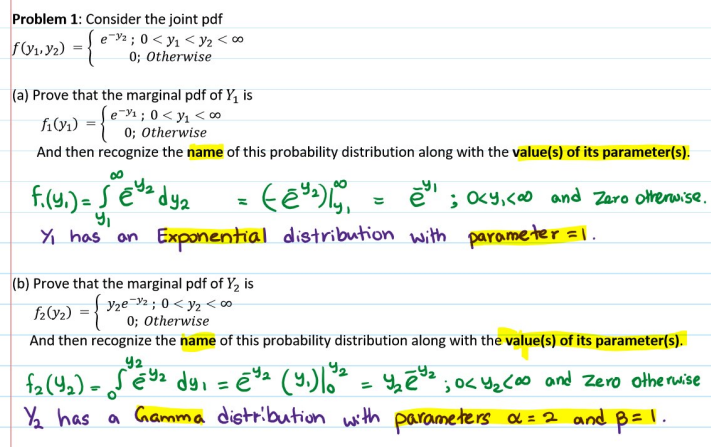 Problem 1: Consider the joint pdf
f(y₁, y₂) = { e^{-y₂} ; 0 < y₁ < y₂ < ∞
0; Otherwise
(a) Prove that the marginal pdf of Y₁ is
f₁(y₁) = { e^{-y₁} ; 0 < y₁ < ∞
0; Otherwise
And then recognize the name of this probability distribution along with the value(s) of its parameter(s).
f₁(y₁) = ∫_{y₁}^{∞} e^{-y₂} dy₂ = (-e^{-y₂})|_{y₁}^{∞} = e^{-y₁} ; 0<y₁<∞ and zero otherwise.
Y₁ has an Exponential distribution with parameter = 1.
(b) Prove that the marginal pdf of Y₂ is
f₂(y₂) = { y₂e^{-y₂} ; 0 < y₂ < ∞
0; Otherwise
And then recognize the name of this probability distribution along with the value(s) of its parameter(s).
f₂(y₂) = ∫_{0}^{y₂} e^{-y₂} dy₁ = e^{-y₂} (y₁)|_{0}^{y₂} = y₂e^{-y₂} ; 0<y₂<∞ and zero otherwise
Y₂ has a Gamma distribution with parameters α = 2 and β = 1.